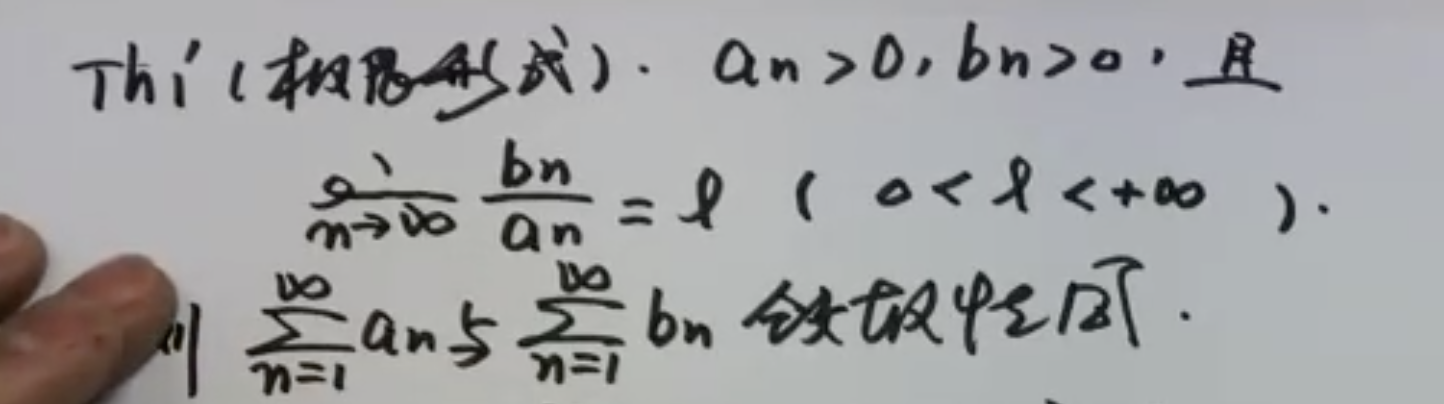 Th1' (极限形式). an>0, bn>0, 且
lim n→∞ bn/an = l ( 0<l<+∞ ).
则 ∑_{n=1}^{∞} an 与 ∑_{n=1}^{∞} bn 敛散性同.